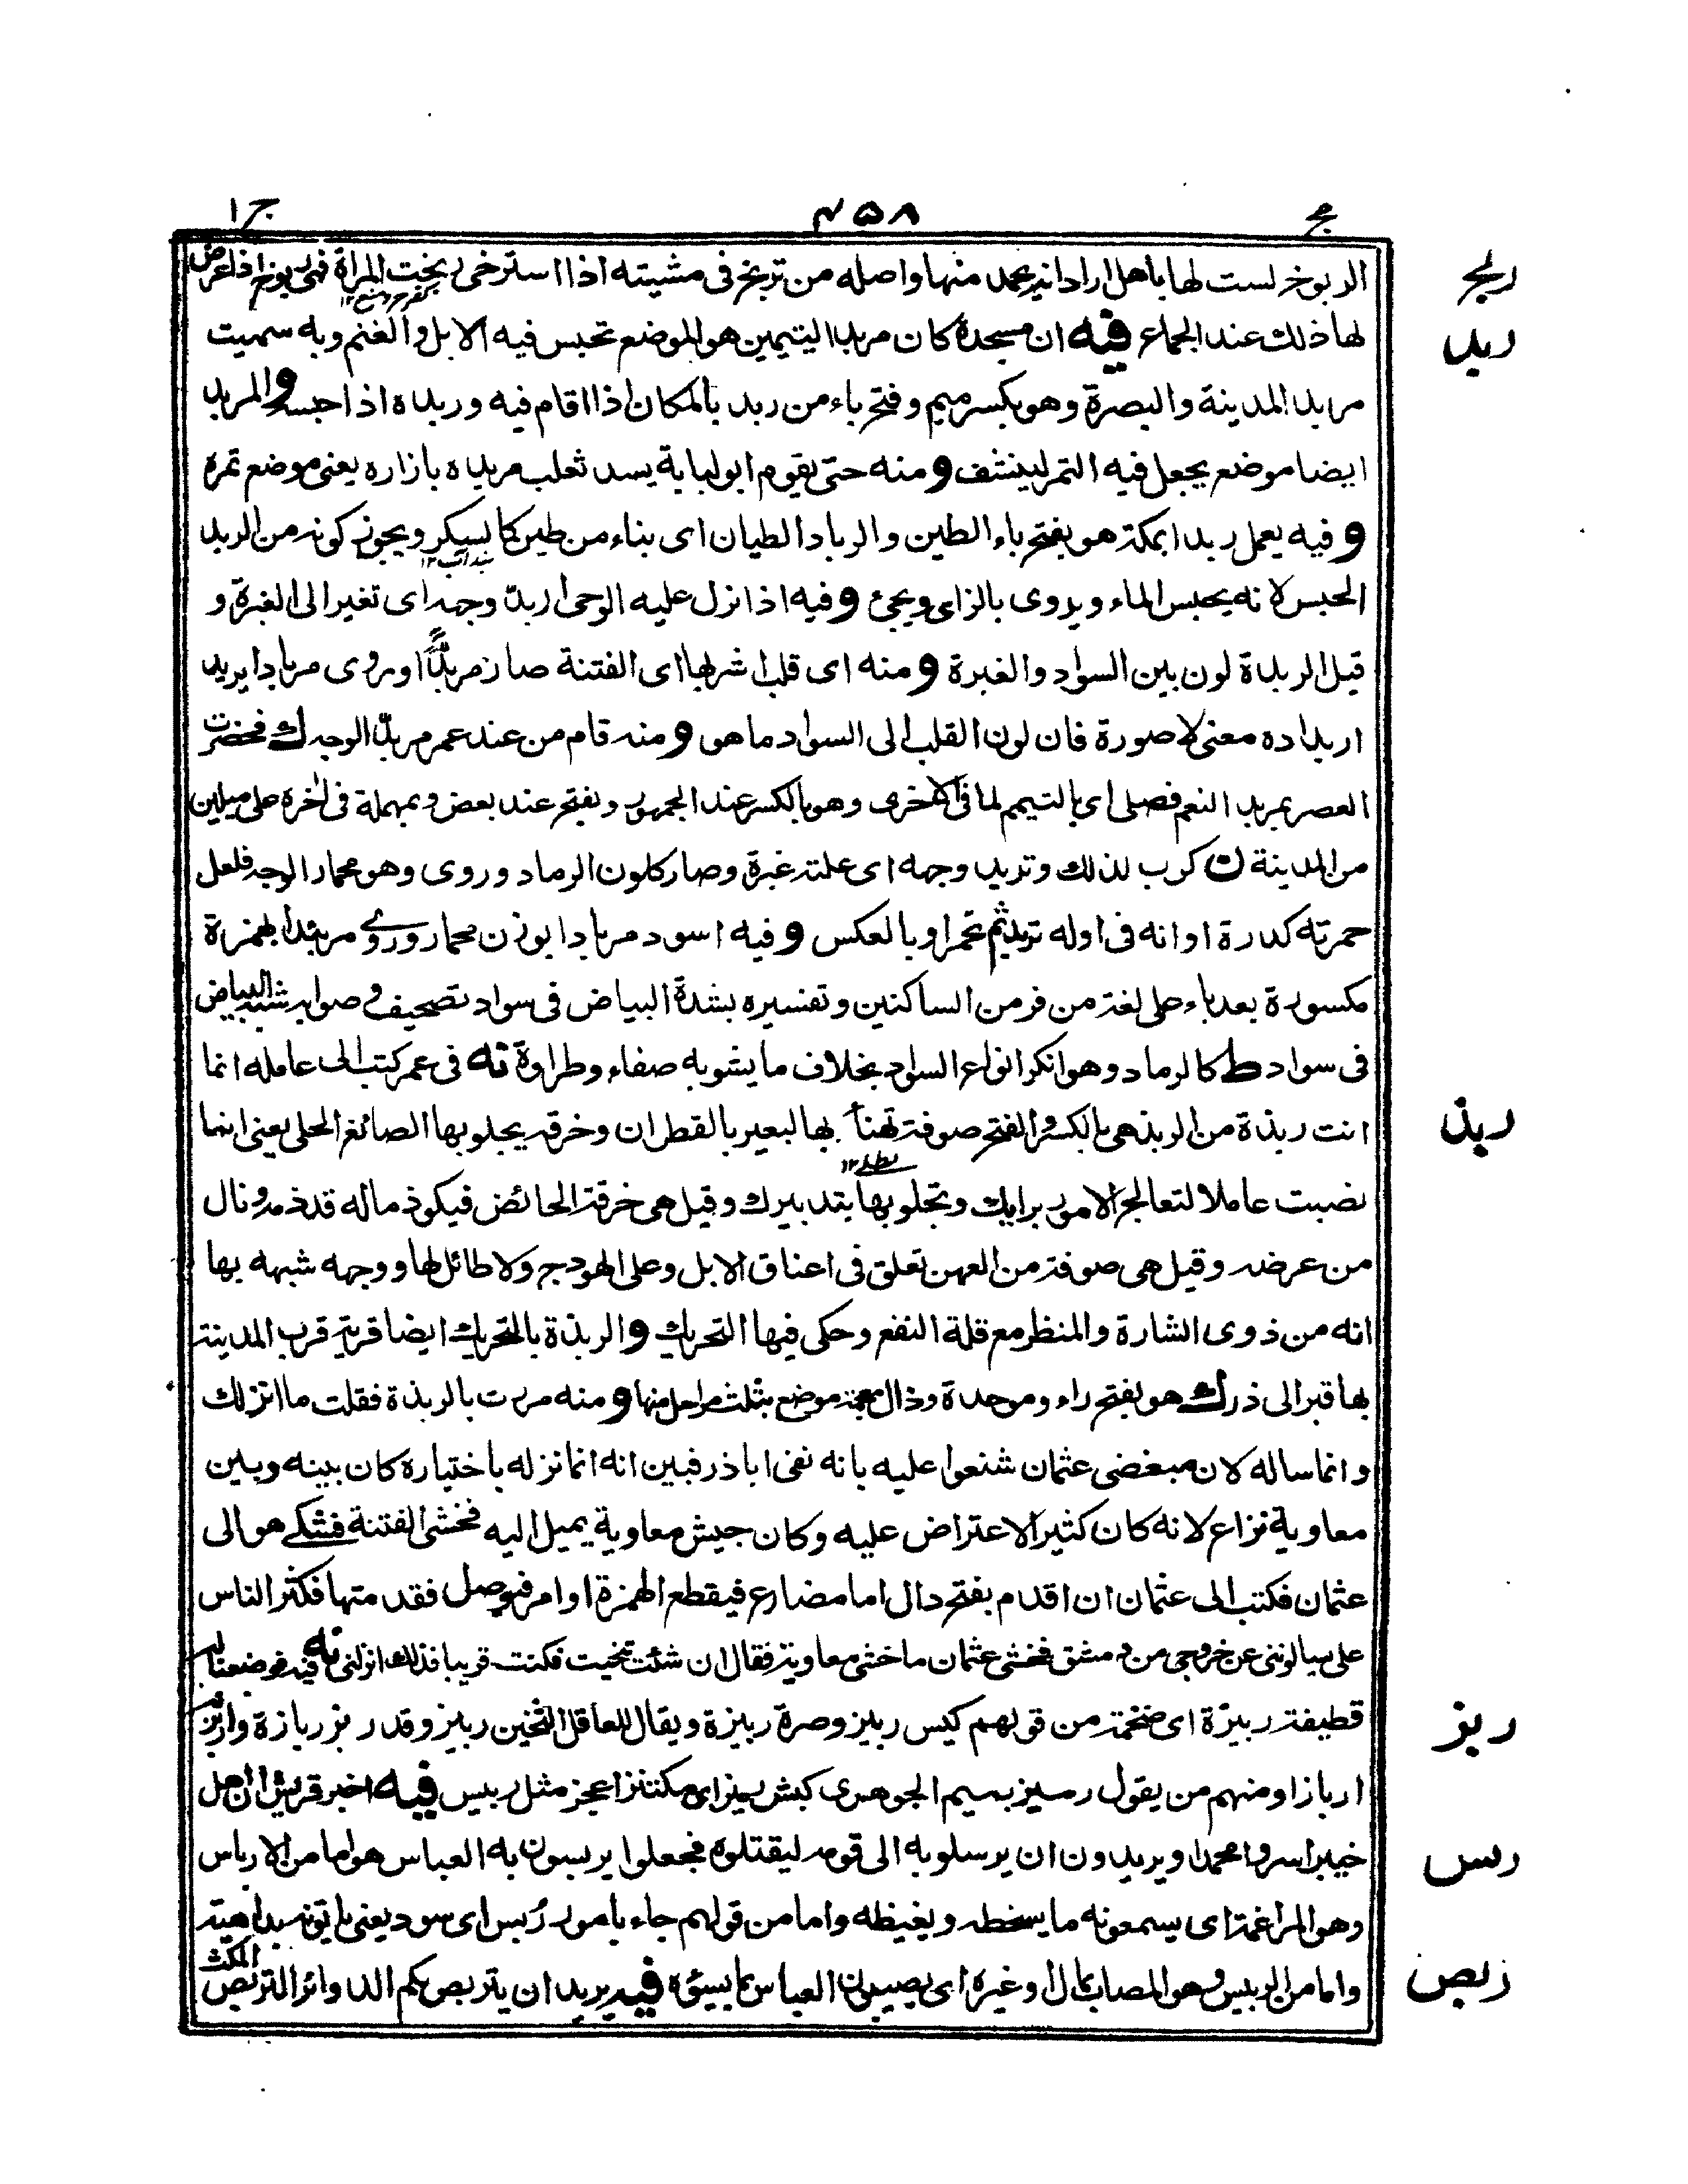 مج ٤٥٨ ج ١
الربوخ لست لها باهل اراد انه يحمد منها واصله من تربخ فى مشيته اذا استرخى ربخت المرأة فهى ربوخ اذا عرض
ربخ
لها ذلك عند الجماع فيه ان مسجده كان مربدا ليتيمين هو الموضع تحبس فيه الابل والغنم وبه سميت
ربد
مربد المدينة والبصرة وهو بكسر ميم وفتح باء من ربد بالمكان اذا اقام فيه وربده اذا حبسه و المربد
ايضا موضع يجعل فيه التمر لينشف و منه حتى يقوم ابو لبابة يسد ثعلب مربده بازاره يعنى موضع تمره
و فيه يعمل ربدا بمكة هو بفتح باء الطين والرباد الطيان اى بناء من طين كالسكر ويجوز كونه من الربد
الحبس لانه يحبس الماء ويروى بالزاى ويجئ و فيه اذا نزل عليه الوحى اربدّ وجهه اى تغير الى الغبرة و
قيل الربدة لون بين السواد والغبرة و منه اى قلب اشربها اى الفتنة صار مربدًّا وروى مربادا يريد
اربداده معنى لا صورة فان لون القلب الى السواد ما هو و منه قام من عند عمر مربدّ الوجه ك فحضرت
العصر بمربد النعم فصلى اى بالتيمم لما فى الاخرى وهو بالكسر عند الجمهور وبفتح عند بعض وبمهملة فى اٰخره على ميلين
من المدينة ن كرب لذلك وتربد وجهه اى علته غبرة وصار كلون الرماد وروى وهو محمار الوجه فلعل
حمرته كدرة او انه فى اوله تربد ثم تحمر او بالعكس و فيه اسود مربادا بوزن محمار وروى مربئدا بهمزة
مكسورة بعد باء على لغة من فر من الساكنين وتفسيره بشدة البياض فى سواد تصحيف وصوابه شبه البياض
فى سواد ط كالرماد وهو انكر انواع السواد بخلاف ما يشوبه صفاء وطراوة نه فى عمر كتب الى عامله انما
انت ربذة من الربذ هى بالكسر والفتح صوفة تهنأ بها البعير بالقطران وخرقه يجلو بها الصائغ الحلى يعنى انما
ربذ
نصبت عاملا لتعالج الامور برايك وتجلو بها بتدبيرك وقيل هى خرقة الحائض فيكون ماله قد ذمه ونال
من عرضه وقيل هى صوفة من العهن تعلق فى اعناق الابل وعلى الهودج ولا طائل لها ووجهه شبهه بها
انه من ذوى الشارة والمنظر مع قلة النفع وحكى فيها التحريك و الربذة بالتحريك ايضا قرية قرب المدينة
بها قبر ابى ذر ك هو بفتح راء وموحدة وذال معجمة موضع بثلث مراحل منها و منه مررت بالربذة فقلت ما انزلك
وانما ساله لان مبغضى عثمان شنعوا عليه بانه نفى ابا ذر فبين انه انما نزله باختياره كان بينه وبين
معاوية نزاع لانه كان كثير الاعتراض عليه وكان جيش معاوية يميل اليه فخشى الفتنة فشكى هو الى
عثمان فكتب الى عثمان ان اقدم بفتح دال اما مضارع فيقطع الهمزة او امر فيوصل فقدمتها فكثر الناس
على يسالوننى عن خروجى من دمشق فخشى عثمان ما خشى معاوية فقال ان شئت تنحيت فكنت قريبا فذلك انزلنى نه فيه فوضعنا له
قطيفة ربيزة اى ضخمة من قولهم كيس ربيز وصرة ربيزة ويقال للعاقل الثخين ربيز وقد ربز ربازة واربزته
ربز
اربازا ومنهم من يقول رميز بميم الجوهرى كبش ربيز اى مكتنز اعجز مثل ربيس فيه اخبر قريش ان اهل
خيبر اسروا محمدا ويريدون ان يرسلوبه الى قومه ليقتلوه فجعلوا يربسون به العباس هو اما من الارباس
ربس
وهو المراغمة اى يسمعونه ما يسخطه ويغيظه واما من قولهم جاء بامور رُبس اى سود يعنى ياتونه بداهية
واما من الربيس وهو المصاب بمال وغيره اى يصيبون العباس بما يسؤه فيه يريد ان يتربص بكم الدوائر التربص المكث
ربص